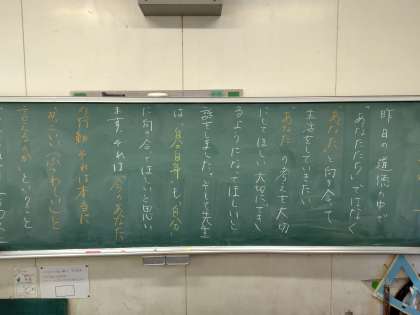 昨日の道徳の中で
"あなたたち"ではなく
"あなた"と向き合って
生活をしていきたい
あなたの考えを大切
にしてほしい 大切にでき
るようになってほしいと
話をしました。そして先生
は 自分自身も、自分
に向き合ってほしいと思い
ます。それは 今のあなた
の行動 それは本当に
かっこいい(かわいい)と
言えるか ということ